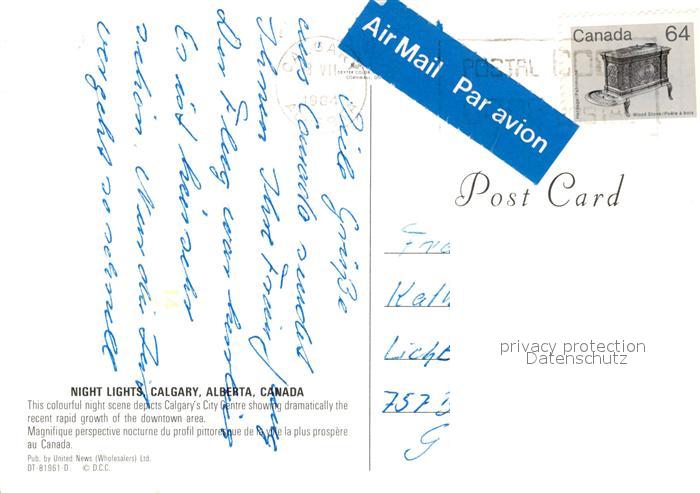 Air Mail Par avion
Canada 64
Wood Stove/Poêle à bois
1984
POSTAL CO
Post Card
Viele Grüße
aus Canada sendet
Ihnen Ihre
Der Flug war
Es ist hier sehr
schön. Nur die Zeit
vergeht so schnell
Fra
Kath
Licht
757
G
privacy protection
Datenschutz
NIGHT LIGHTS, CALGARY, ALBERTA, CANADA
This colourful night scene depicts Calgary's City Centre showing dramatically the
recent rapid growth of the downtown area.
Magnifique perspective nocturne du profil pittoresque de la ville la plus prospère
au Canada.
Pub. by United News (Wholesalers) Ltd.
DT-81961-D © D.C.C.